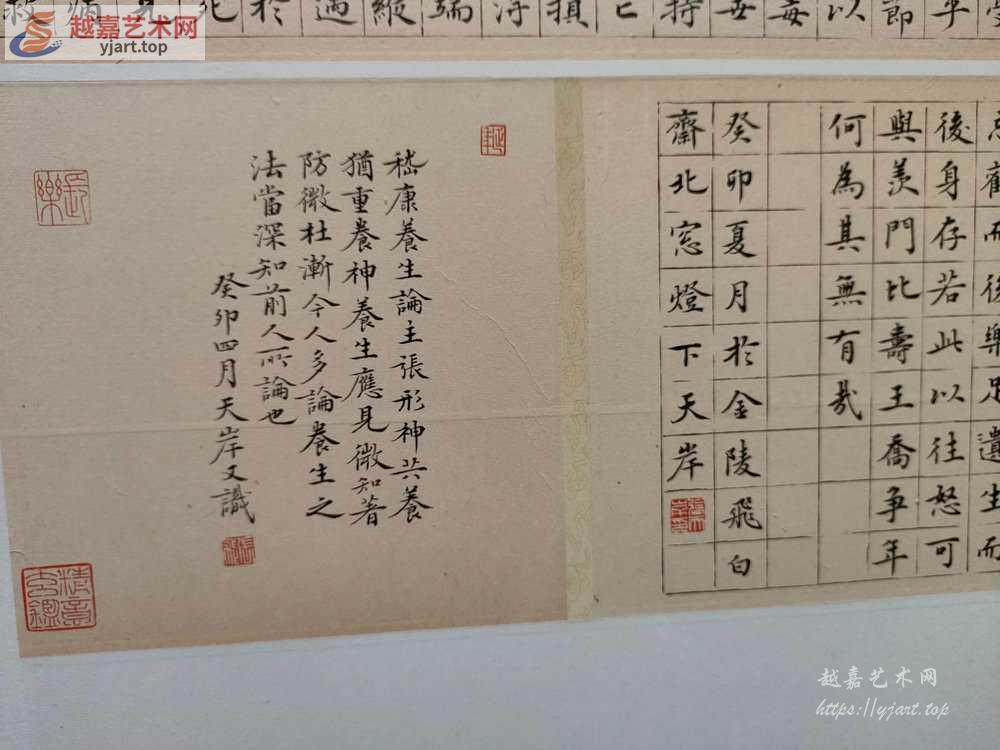 越嘉艺术网
yjart.top
歡而後樂足遺生而
後身存若此以往怒可
與羨門比壽王喬爭年
何為其無有哉
癸卯夏月於金陵飛白
齋北窓燈下天岸
嵇康養生論主張形神共養
猶重養神養生應見微知著
防微杜漸今人多論養生之
法當深知前人所論也
癸卯四月天岸又識
長樂
越嘉艺术网
https://yjart.top